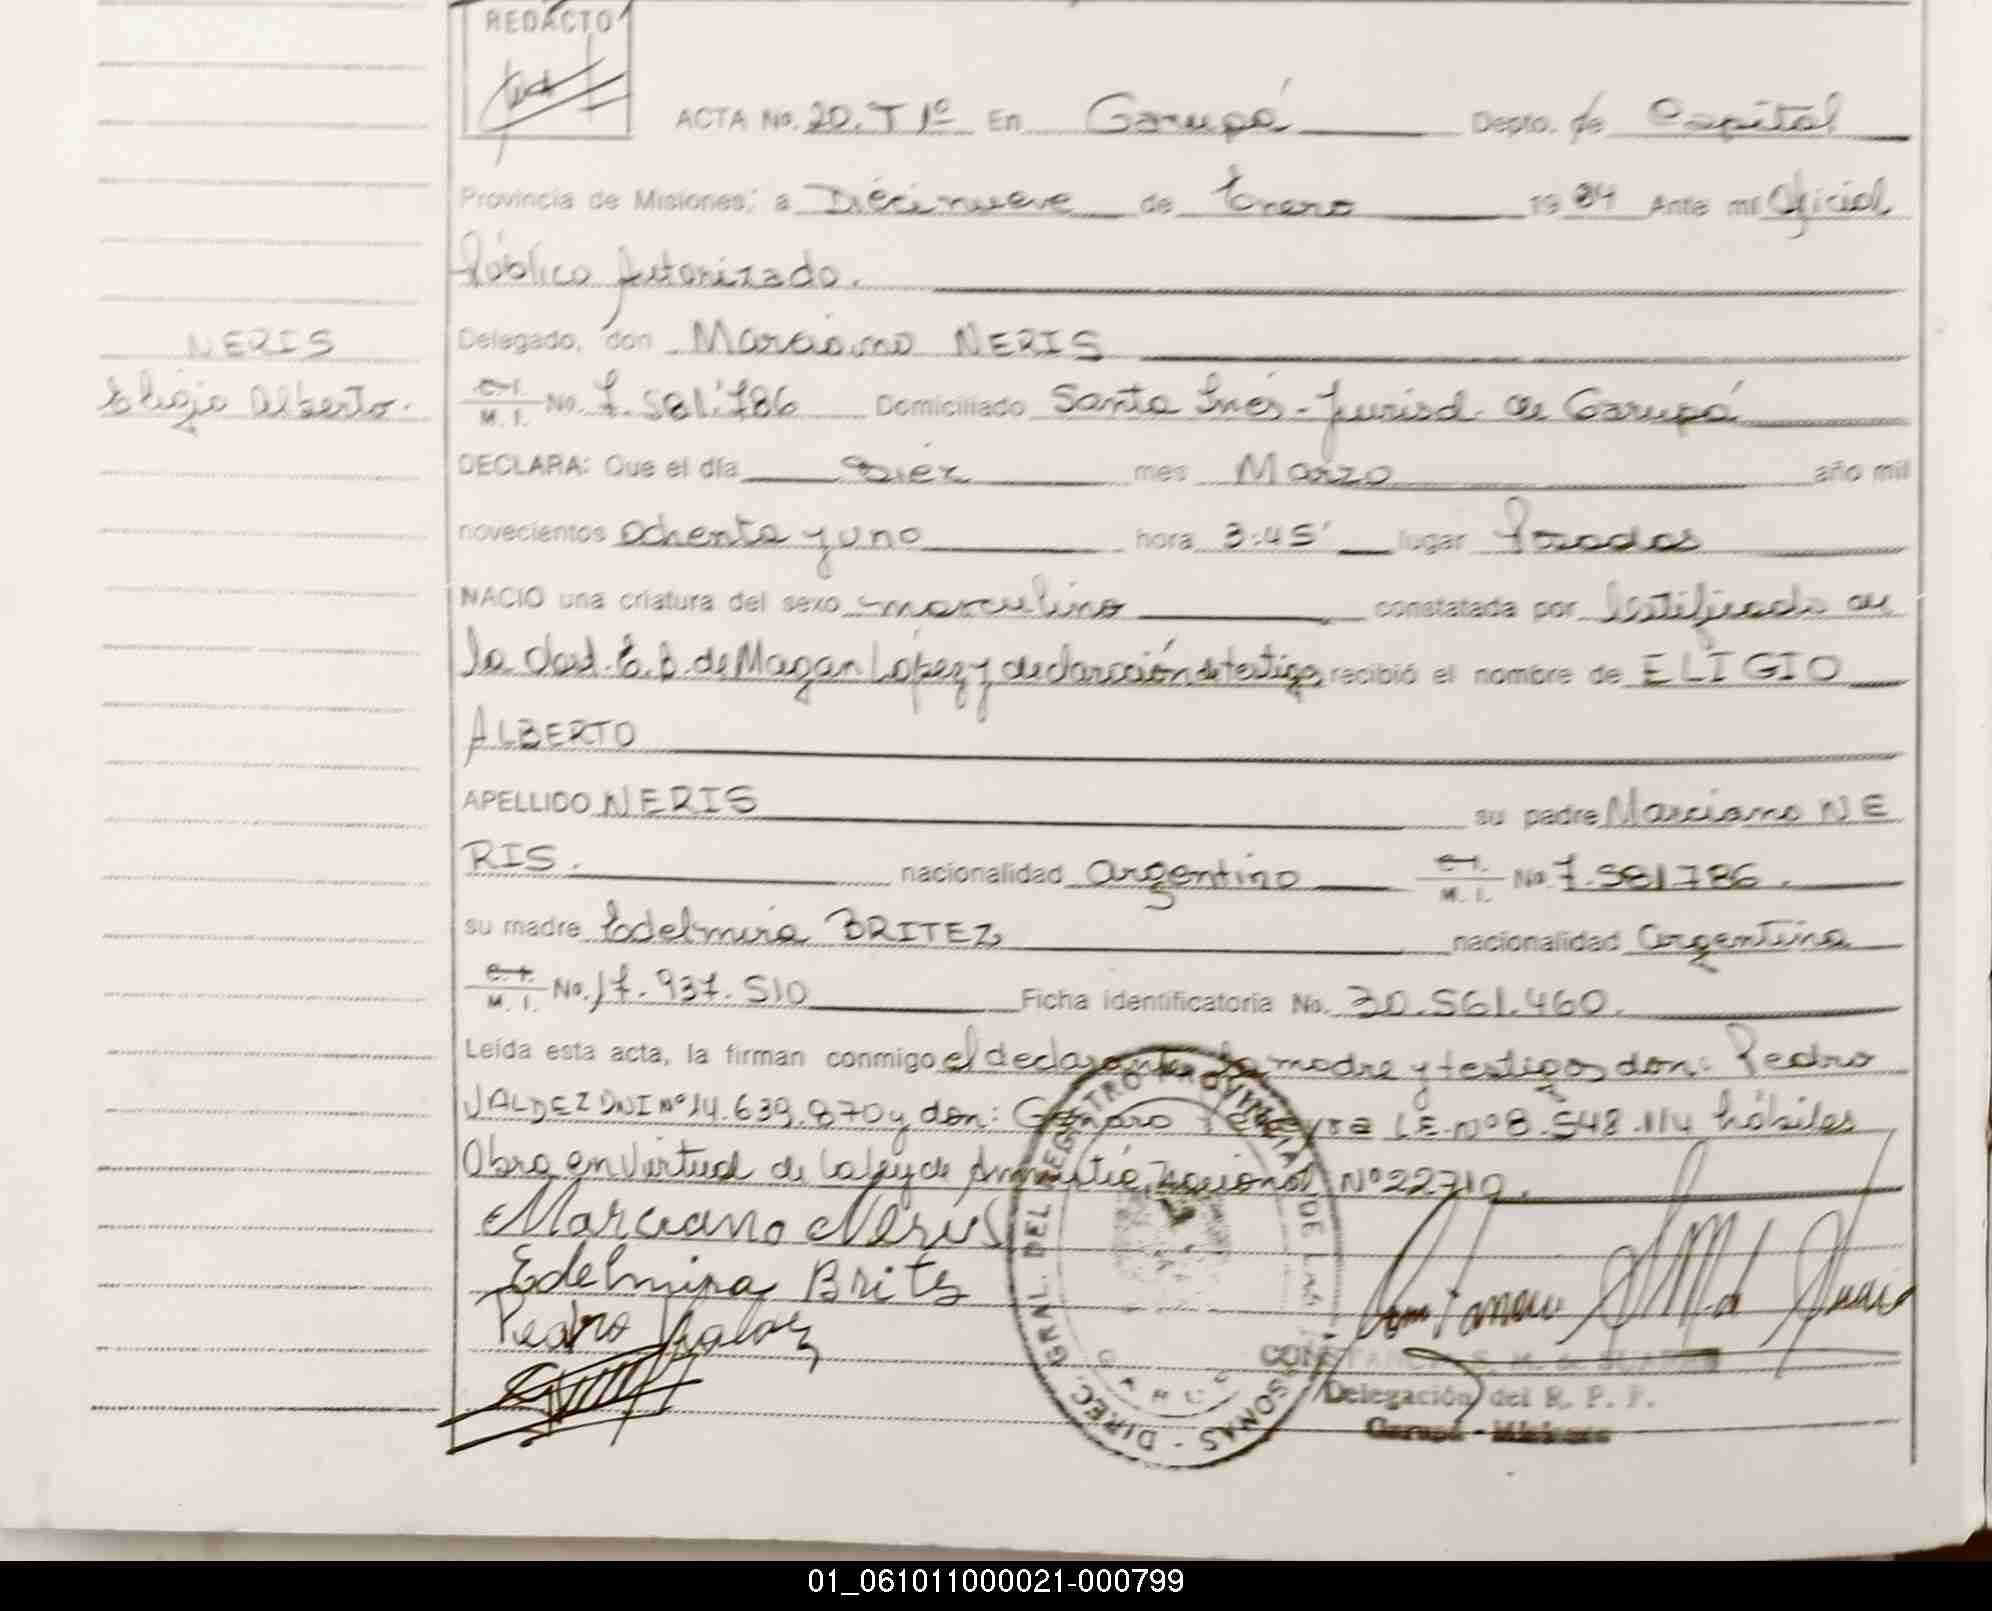 REDACTO
ACTA No. 20. T 1º En Garupá Depto. de Capital
Provincia de Misiones, a Diecinueve de Enero 1984 Ante mi Oficial
Público Autorizado.
Delegado, don Marciano NERIS
NERIS
Eligio Alberto.
C.I. M. I. No. 7.581.786 Domiciliado Santa Inés - Jurisd. de Garupá
DECLARA: Que el día Diez mes Marzo año mil
novecientos ochenta y uno hora 3:45' lugar Posadas
NACIO una criatura del sexo masculino constatada por Certificado de
la Obst. E. B. de Magan López y declaración de testigos recibió el nombre de ELIGIO
ALBERTO
APELLIDO NERIS su padre Marciano NE
RIS. nacionalidad argentino C.I. M. I. No. 7.581786.
su madre Edelmira BRITEZ nacionalidad argentina
C.I. M. I. No. 17.937.510 Ficha identificatoria No. 30.561.460.
Leída esta acta, la firman conmigo el declarante, la madre y testigos don: Pedro
VALDEZ DNI Nº 14.639.870 y don: Genaro LE. Nº 8.548.114 hábiles
Obra en virtud de la ley de Amnistía Nacional Nº 22710.
Marciano Neris
Edelmira Brites
Pedro Valdez
DIREC. GRAL. DEL REGISTRO PROVINCIAL DE LAS PERSONAS
CONSTANCIA S. M. de SUAREZ
Delegación del R. P. P.
Garupá - Misiones
01_061011000021-000799